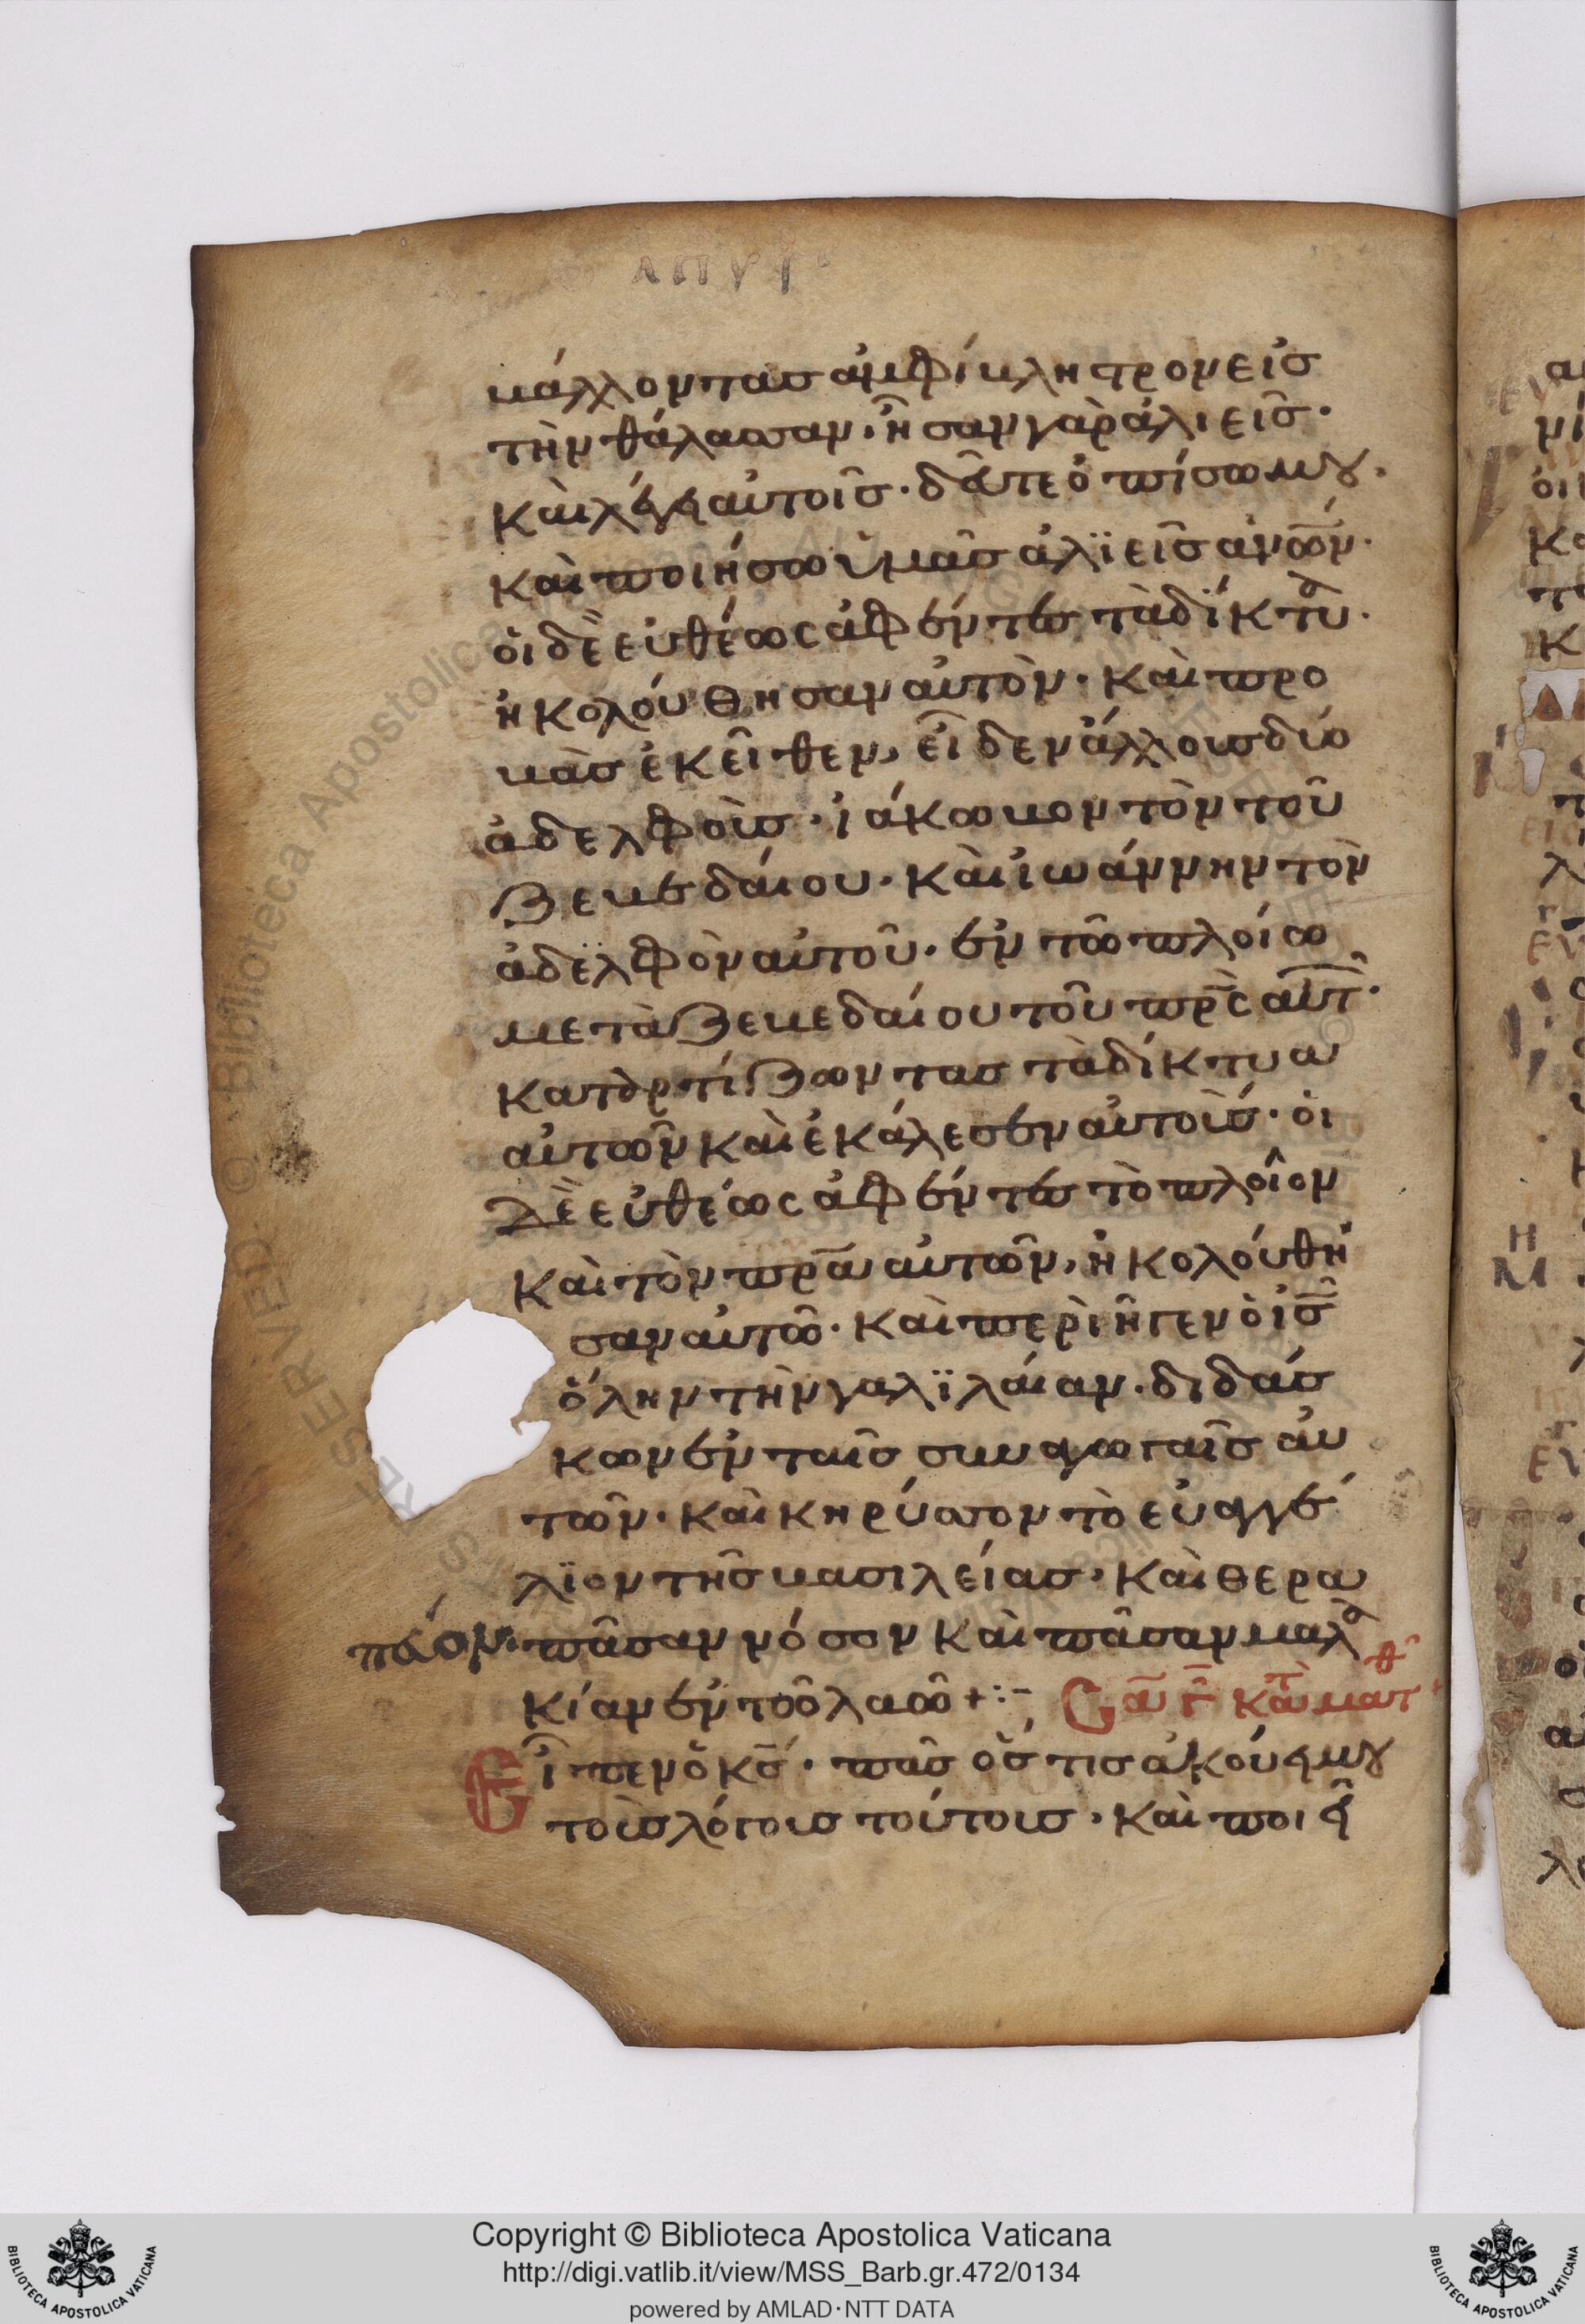 βάλλοντας ἀμφίβληστρον εἰς
τὴν θάλασσαν· ἦσαν γὰρ ἁλιεῖς·
Καὶ λέγει αὐτοῖς· δεῦτε ὀπίσω μου·
καὶ ποιήσω ὑμᾶς ἁλϊεῖς ἀν̅ω̅ν·
οἱ δὲ εὐθέως ἀφέντες τὰ δίκτυα·
ἠκολούθησαν αὐτὸν· καὶ προ
βὰς ἐκεῖθεν, εἶδεν ἄλλους δύο
ἀδελφοὺς· ἰάκωβον τὸν τοῦ
Ζεβεδαίου· καὶ ἰωάννην τὸν
ἀδελφὸν αὐτοῦ· ἐν τῶ πλοίω
μετὰ Ζεβεδαίου τοῦ πρ̅ς αὐτ·
Καταρτίζωντας τὰ δίκτυα
αὐτῶν καὶ ἐκάλεσεν αὐτοὺς· οἱ
δὲ εὐθέως ἀφέντες τὸ πλοῖον
καὶ τὸν πρ̅α αὐτῶν, ἠκολούθη
σαν αὐτῶ· Καὶ περὶῆγεν ὁ ι̅ς̅
ὅλην τὴν γαλϊλαίαν· διδάσ
κων ἐν ταῖς συναγωγαῖς αὐ
τῶν· καὶ κηρύσσον τὸ εὐαγγέ
λϊον τῆς βασιλείας· Καὶ θερα
πεύον· πᾶσαν νόσον καὶ πᾶσαν μαλα
κίαν ἐν τῶ λαῶ +:–
Σα Γ̅ κατὰ ματθ
Εἶπεν ὁ κ̅ς· πᾶς ὅστις ἀκούει μου
τοὺς λόγους τούτους· καὶ ποιεῖ
Copyright © Biblioteca Apostolica Vaticana
http://digi.vatlib.it/view/MSS_Barb.gr.472/0134
powered by AMLAD·NTT DATA
BIBLIOTECA APOSTOLICA VATICANA
BIBLIOTECA APOSTOLICA VATICANA